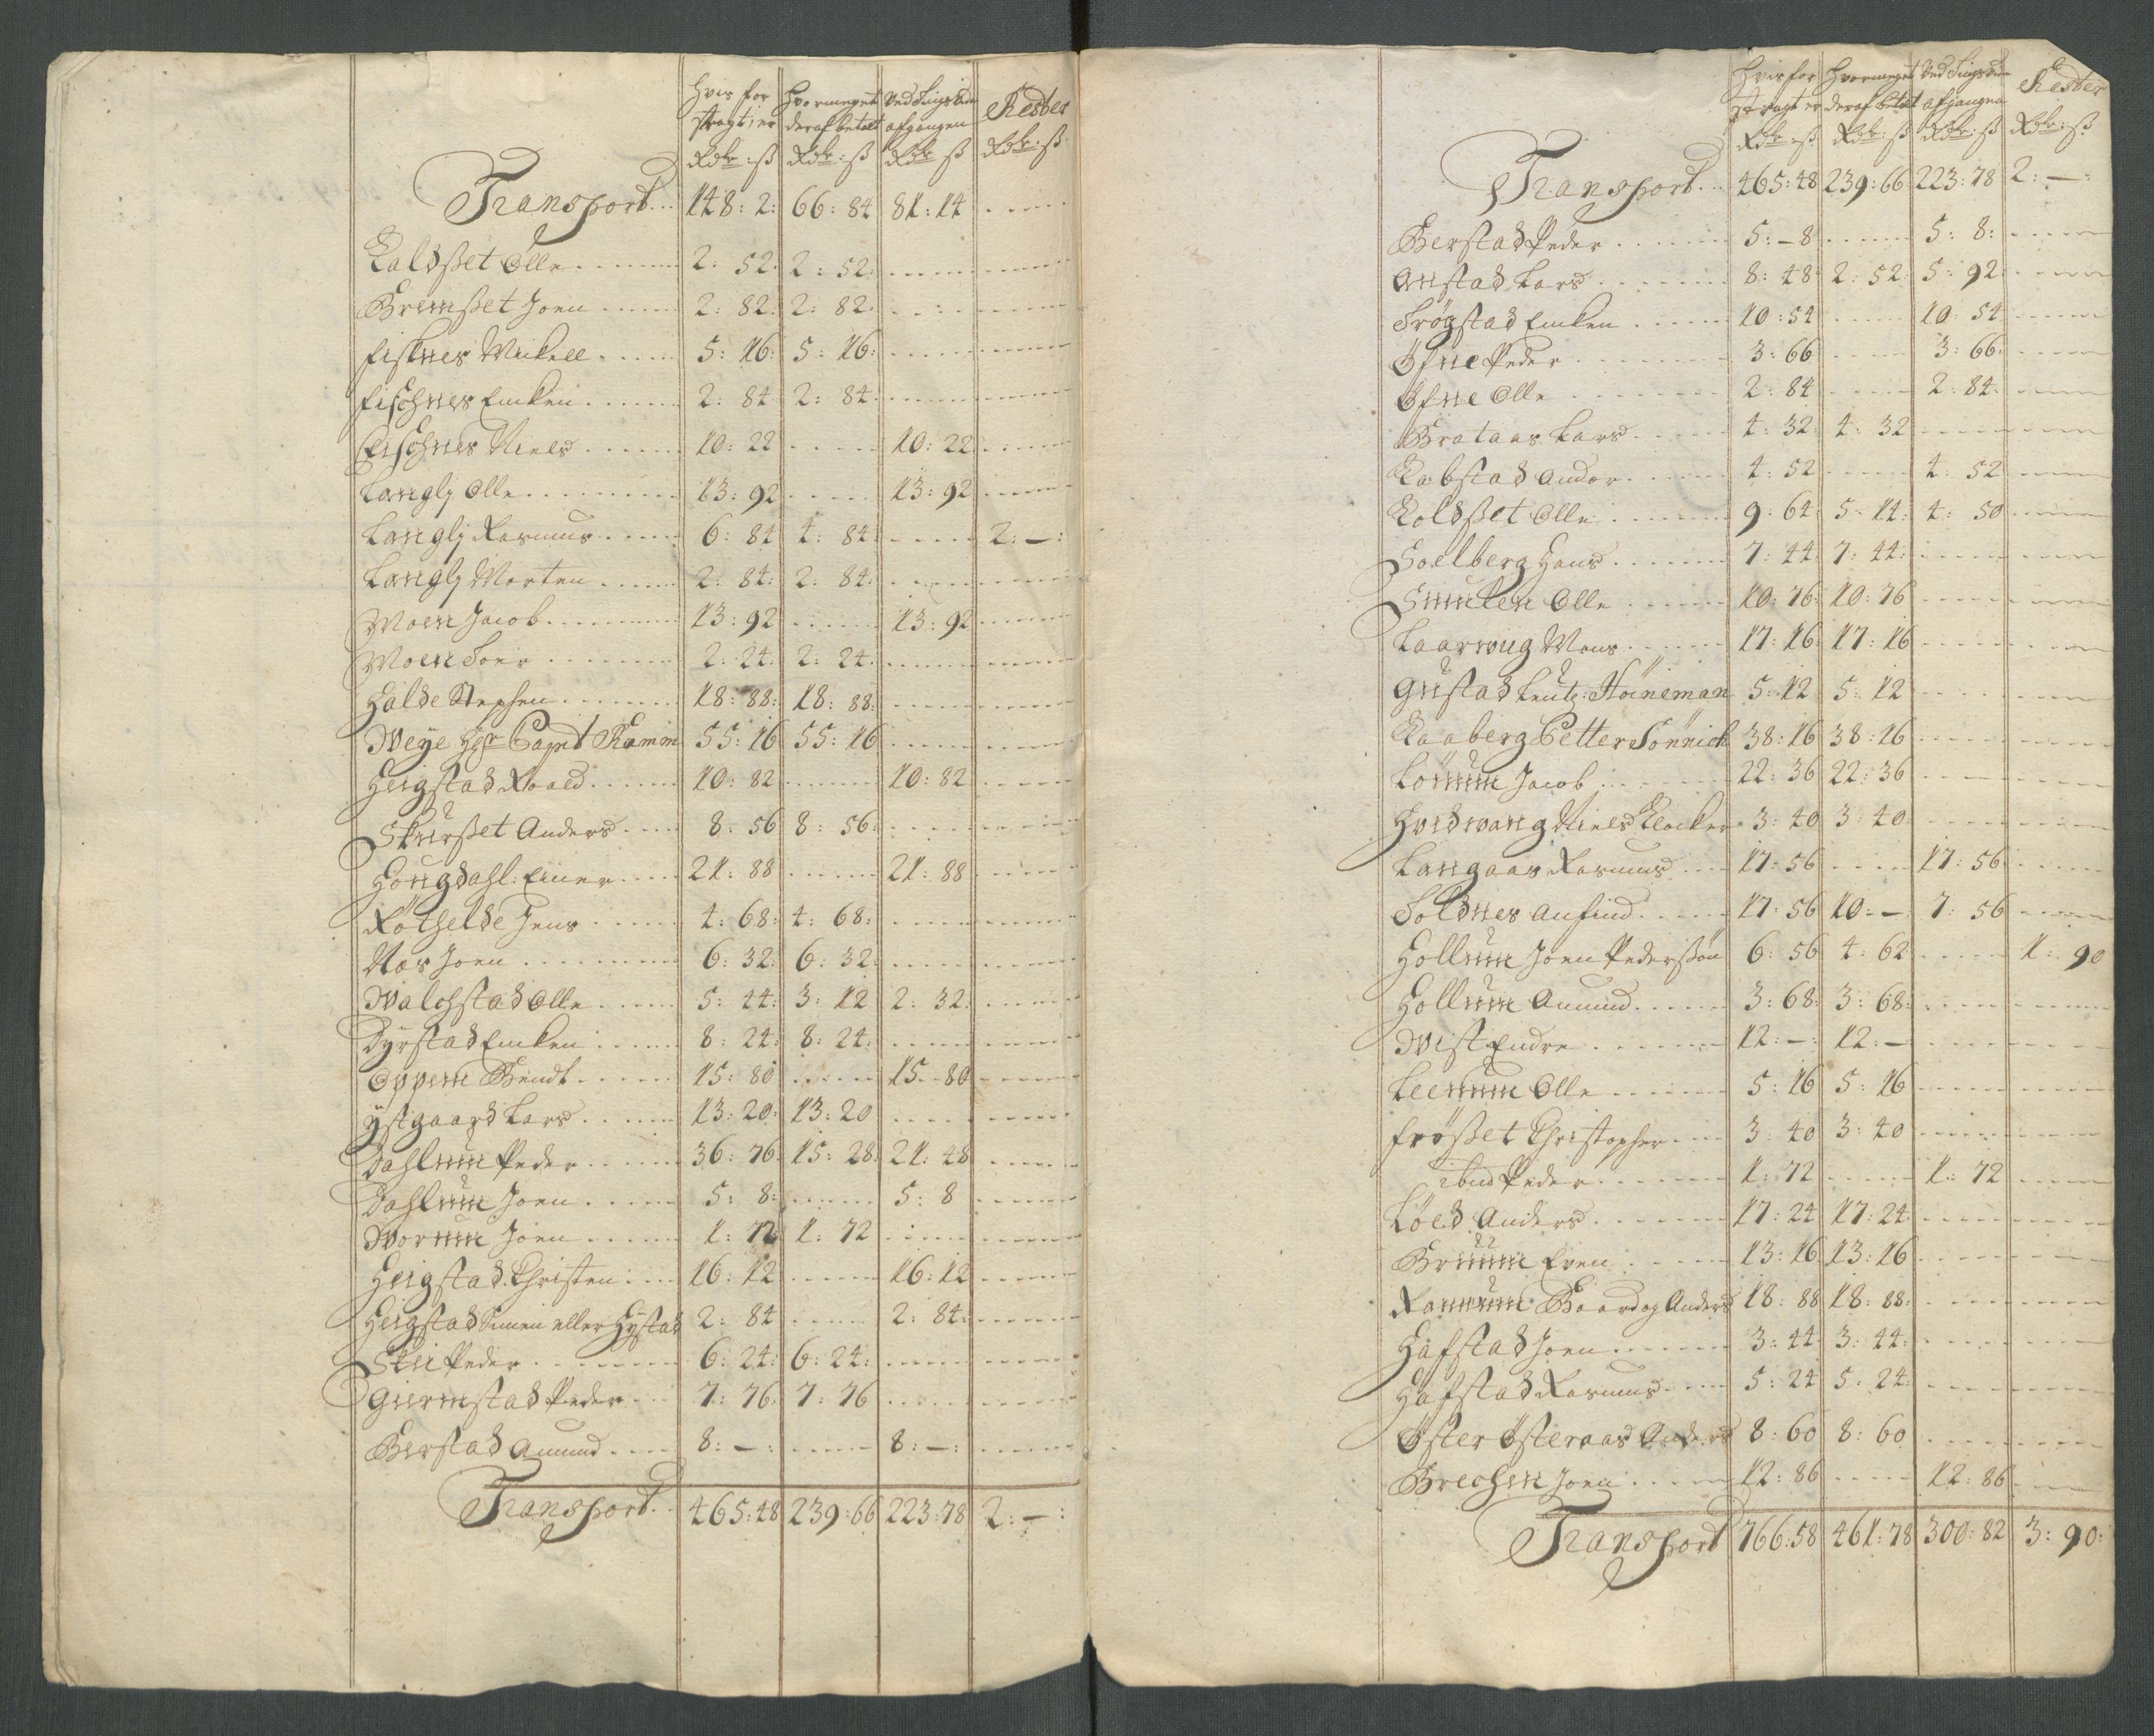 Hvis for Hvormeget Ved Tings Ede Rester
stragt er deraf betalt afgangen
Rdr: ß Rdr: ß Rdr ß Rdr: ß
Transport... 148: 2: 66: 84 81: 14
Kaldßet Olle 2: 52: 2: 52:
Bremßet Joen 2: 82: 2: 82:
Fisknes Mickell 5: 16: 5: 16:
Fischnes Encken 2: 84 2: 84:
Fischnes Niels 10: 22 10: 22
Langlj Olle 13: 92 13: 92
Langlj Rasmus 6: 84 4: 84: 2: – :
Langlj Morten 2: 84: 2: 84:
Moen Jacob 13: 92 13: 92
Moen Toer 2: 24: 2: 24:
Halde Stephen 18: 88: 18: 88:
Weye Hr Capnt Ramm 55: 16 55: 16
Heigstad Roald 10: 82 10: 82
Skurßet Anders 8: 56 8: 56:
Hougdahl: Einer 21: 88 21: 88
Røthelde Jens 4: 68: 4: 68:
Nos Joen 6: 32: 6: 32:
Walchstad Olle 5: 44: 3: 12 2: 32:
Dyrstad Encken 8: 24: 8: 24:
Oppem Bendt 15: 80 15: 80
Ystgaard Lars 13: 20: 13: 20
Dahlum Peder 36: 76: 15: 28: 21: 48
Dahlum Joen 5: 8: 5: 8
Worum Joen 1: 72 1: 72
Heigstad Christen 16: 12 16: 12
Heigstad Simen eller Hystad 2: 84 2: 84:
Stei Peder 6: 24: 6: 24:
Giermstad Peder 7: 76: 7: 76
Berstad Amund 8: – : 8: – :
Transport. 465: 48 239: 66 223: 78 2: – :
Hvis for Hvormeget Ved Tings Ede Rester
stragt er deraf betalt afgangen
Rdr: ß Rdr: ß Rdr: ß Rdr: ß
Transport... 465: 48 239: 66 223: 78 2: – :
Berstad Peder 5: – 8 5: 8:
Onstad Lars 8: 48 2: 52: 5: 92:
Trøgstad Encken 10: 54 10: 54
Øfne Peder 3: 66 3: 66:
Øfne Olle 2: 84 2: 84:
Brataas Lars 4: 32: 4: 32
Kabstad Andor 4: 52 4: 52
Koldßet Olle 9: 64: 5: 14: 4: 50
Soelberg Hans 7: 44 7: 44:
Smulen Olle 10: 76: 10: 76
Laarvig Mons 17: 16 17: 16
Gustad Leutz: Høineman 5: 12 5: 12
Kaaberg Petter Sönnich 38: 16 38: 16
Lønum Jacob 22: 36 22: 36
Hvidvang Niels Klocker 3: 40 3: 40:
Langaas Rasmus 17: 56 17: 56
Toldnes Anfind 17: 56 10: – 7: 56
Hollum Joen Pederßøn 6: 56 4: 62 1: 90
Hollum Amund 3: 68: 3: 68:
Wist Endre 12: – : 12: –
Leenum Olle 5: 16 5: 16
Frøßet Christopher 3: 40 3: 40
ibnd Peder 1: 72 1: 72
Løed Anders 17: 24 17: 24:
Bruum Even 13: 16 13: 16
Ramnum Baard og Anders 18: 88 18: 88:
Hafstad Joen 3: 44 3: 44:
Hafstad Rasmus 5: 24 5: 24:
Øster Østeraas Anders 8: 60 8: 60
Brechen Joen 12: 86 12: 86
Transport 766: 58 461: 78 300: 82 3: 90: